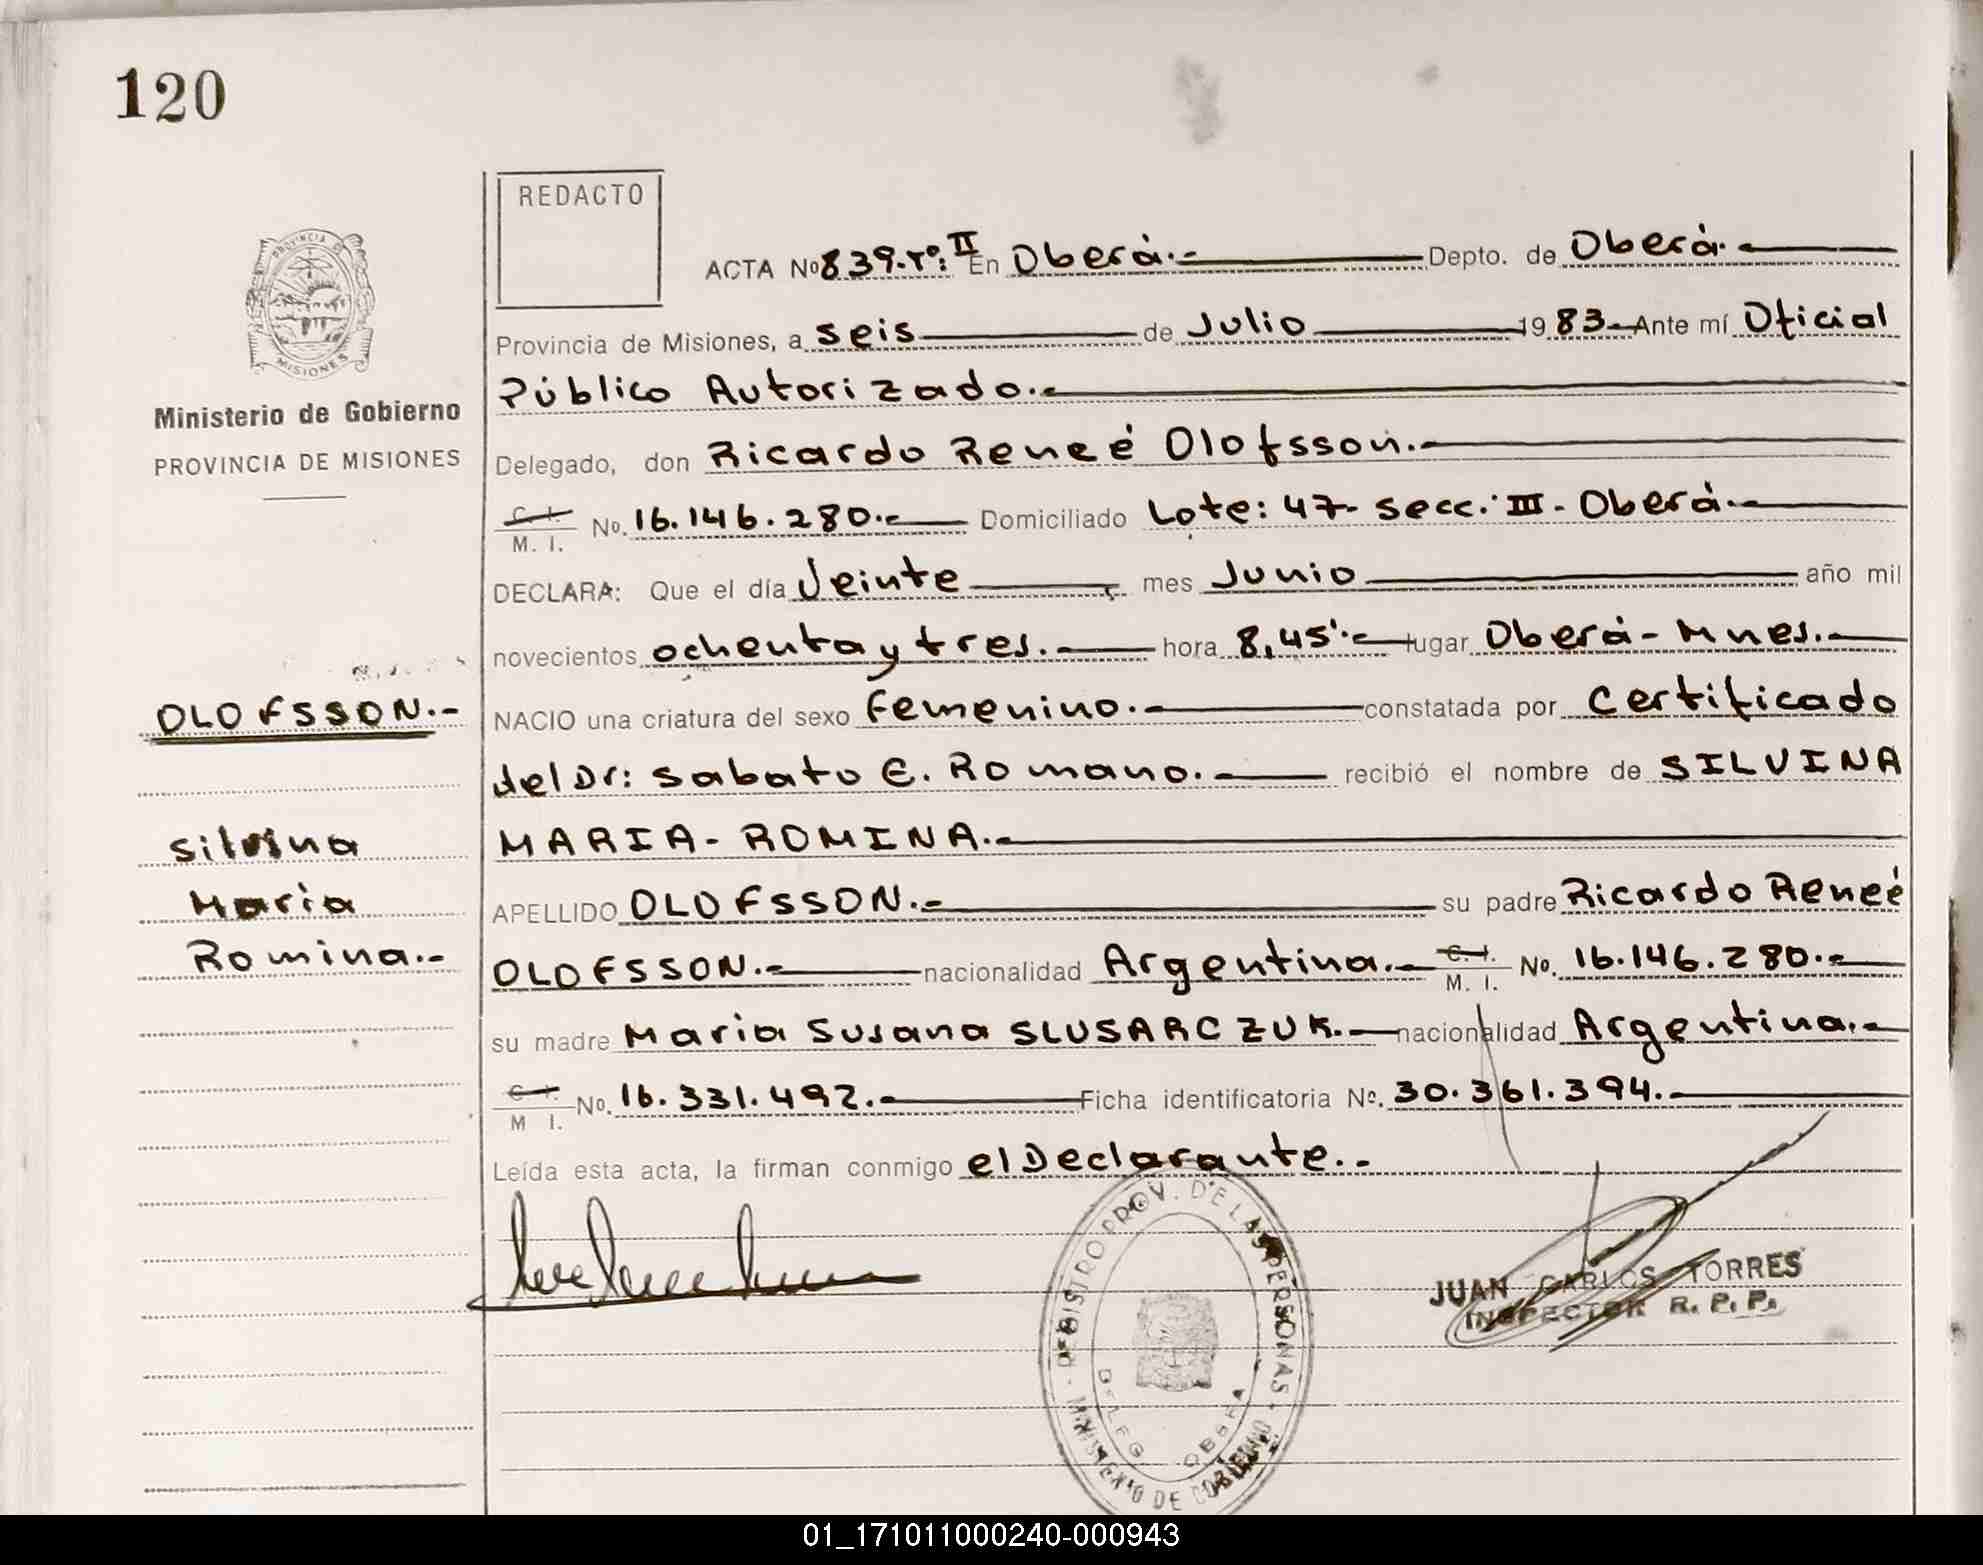 120
REDACTO
PROVINCIA DE
MISIONES
Ministerio de Gobierno
PROVINCIA DE MISIONES
ACTA Nº 839.Tº: II En Oberá.- Depto. de Oberá.-
Provincia de Misiones, a seis de Julio 1983- Ante mí Oficial
Público Autorizado.-
Delegado, don Ricardo Reneé Olofsson.-
C. I.
M. I. No. 16.146.280.- Domiciliado Lote: 47- secc. III - Oberá.-
DECLARA: Que el día Veinte mes Junio año mil
novecientos ochenta y tres.- hora 8,45'.- lugar Oberá - Mnes.-
OLOFSSON.-
NACIO una criatura del sexo Femenino.- constatada por certificado
del Dr: Sabato E. Romano.- recibió el nombre de SILVINA
Silvina
MARIA - ROMINA.-
Maria
APELLIDO OLOFSSON.- su padre Ricardo Reneé
Romina.-
OLOFSSON.- nacionalidad Argentina.- C. I.
M. I. No. 16.146.280.-
su madre Maria Susana SLUSARCZUK.- nacionalidad Argentina.-
C. I.
M I. No. 16.331.492.- Ficha identificatoria Nº. 30.361.394.-
Leída esta acta, la firman conmigo el Declarante.-
REGISTRO PROV. DE LAS PERSONAS - MINISTERIO DE GOBIERNO -
DELEG. OBERA
JUAN CARLOS TORRES
INSPECTOR R. P. P.
01_171011000240-000943